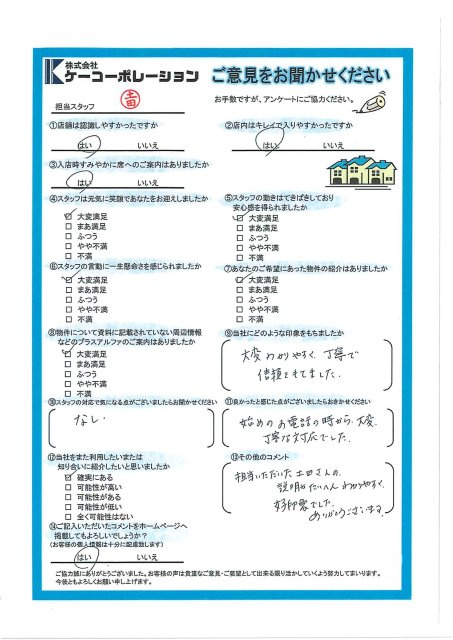 株式会社
ケーコーポレーション
ご意見をお聞かせください
担当スタッフ
土田
お手数ですが、アンケートにご協力ください。
①店舗は認識しやすかったですか
はい いいえ
②店内はキレイで入りやすかったですか
はい いいえ
③入店時すみやかに席へのご案内はありましたか
はい いいえ
④スタッフは元気に笑顔であなたをお迎えしましたか
大変満足
まあ満足
ふつう
やや不満
不満
⑤スタッフの動きはてきぱきしており
安心感を得られましたか
大変満足
まあ満足
ふつう
やや不満
不満
⑥スタッフの言動に一生懸命さを感じられましたか
大変満足
まあ満足
ふつう
やや不満
不満
⑦あなたのご希望にあった物件の紹介はありましたか
大変満足
まあ満足
ふつう
やや不満
不満
⑧物件について資料に記載されていない周辺情報
などのプラスアルファのご案内はありましたか
大変満足
まあ満足
ふつう
やや不満
不満
⑨当社にどのような印象をもちましたか
大変わかりやすく、丁寧で
信頼できました。
⑩スタッフの対応で気になる点がございましたらお聞かせください
なし.
⑪良かったと感じた点がございましたらおきかせください
始めのお電話の時から、大変
丁寧な対応でした。
⑫当社をまた利用したいまたは
知り合いに紹介したいと思いましたか
確実にある
可能性が高い
可能性がある
可能性が低い
全く可能性はない
⑬その他のコメント
担当いただいた土田さんの、
説明がたいへんわかりやすく、
好印象でした。
ありがとうございます。
⑭ご記入いただいたコメントをホームページへ
掲載してもよろしいでしょうか?
(お客様の個人情報は十分に配慮致します)
はい いいえ
ご協力誠にありがとうございました。お客様の声は貴重なご意見・ご要望として出来る限り活かしていくよう努力してまいります。
今後ともよろしくお願い申し上げます。